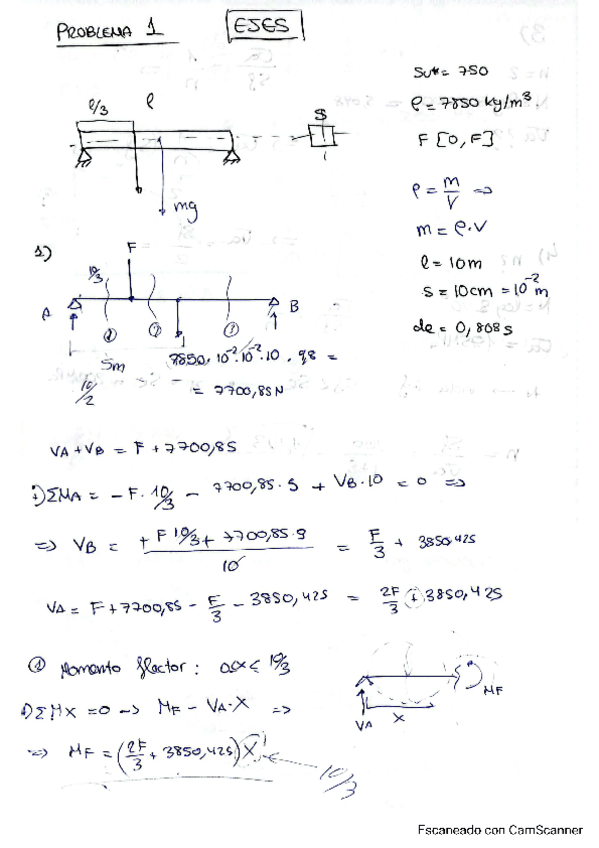 PROBLEMA 1
EJES
Sut = 750
ρ = 7850 kg/m³
F [0, F]
ρ = m/V ⇒
m = ρ·V
l = 10m
s = 10cm = 10⁻² m
de = 0,808 s
l/3
l
S
mg
1)
F
10/3
A
B
① ② ③
5m
10/2
7850 · 10⁻² · 10⁻² · 10 · 9,8 =
= 7700,85N
VA + VB = F + 7700,85
+) ΣMA = - F · 10/3 - 7700,85 · 5 + VB · 10 = 0 ⇒
⇒ VB = + F 10/3 + 7700,85 · 5 / 10 = F/3 + 3850,425
VA = F + 7700,85 - F/3 - 3850,425 = 2F/3 + 3850,425
① Momento flector : 0≤x≤ 10/3
+) ΣMX = 0 → MF - VA·X ⇒
⇒ MF = (2F/3 + 3850,425) X
10/3
VA
X
MF
Escaneado con CamScanner